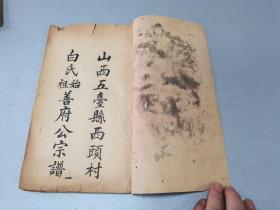 山西五臺縣西頭村
白氏始祖善府公宗譜
一